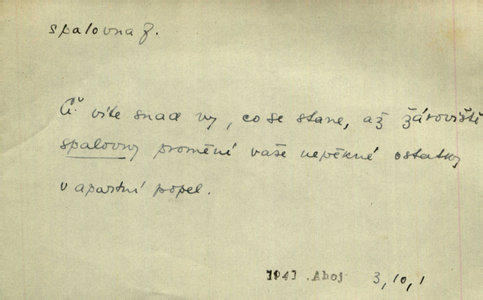 spalovna f.
Či víte snad vy, co se stane, až žároviště
spalovny promění vaše nepěkné ostatky
v apartní popel.
1941 Ahoj 3,10,1